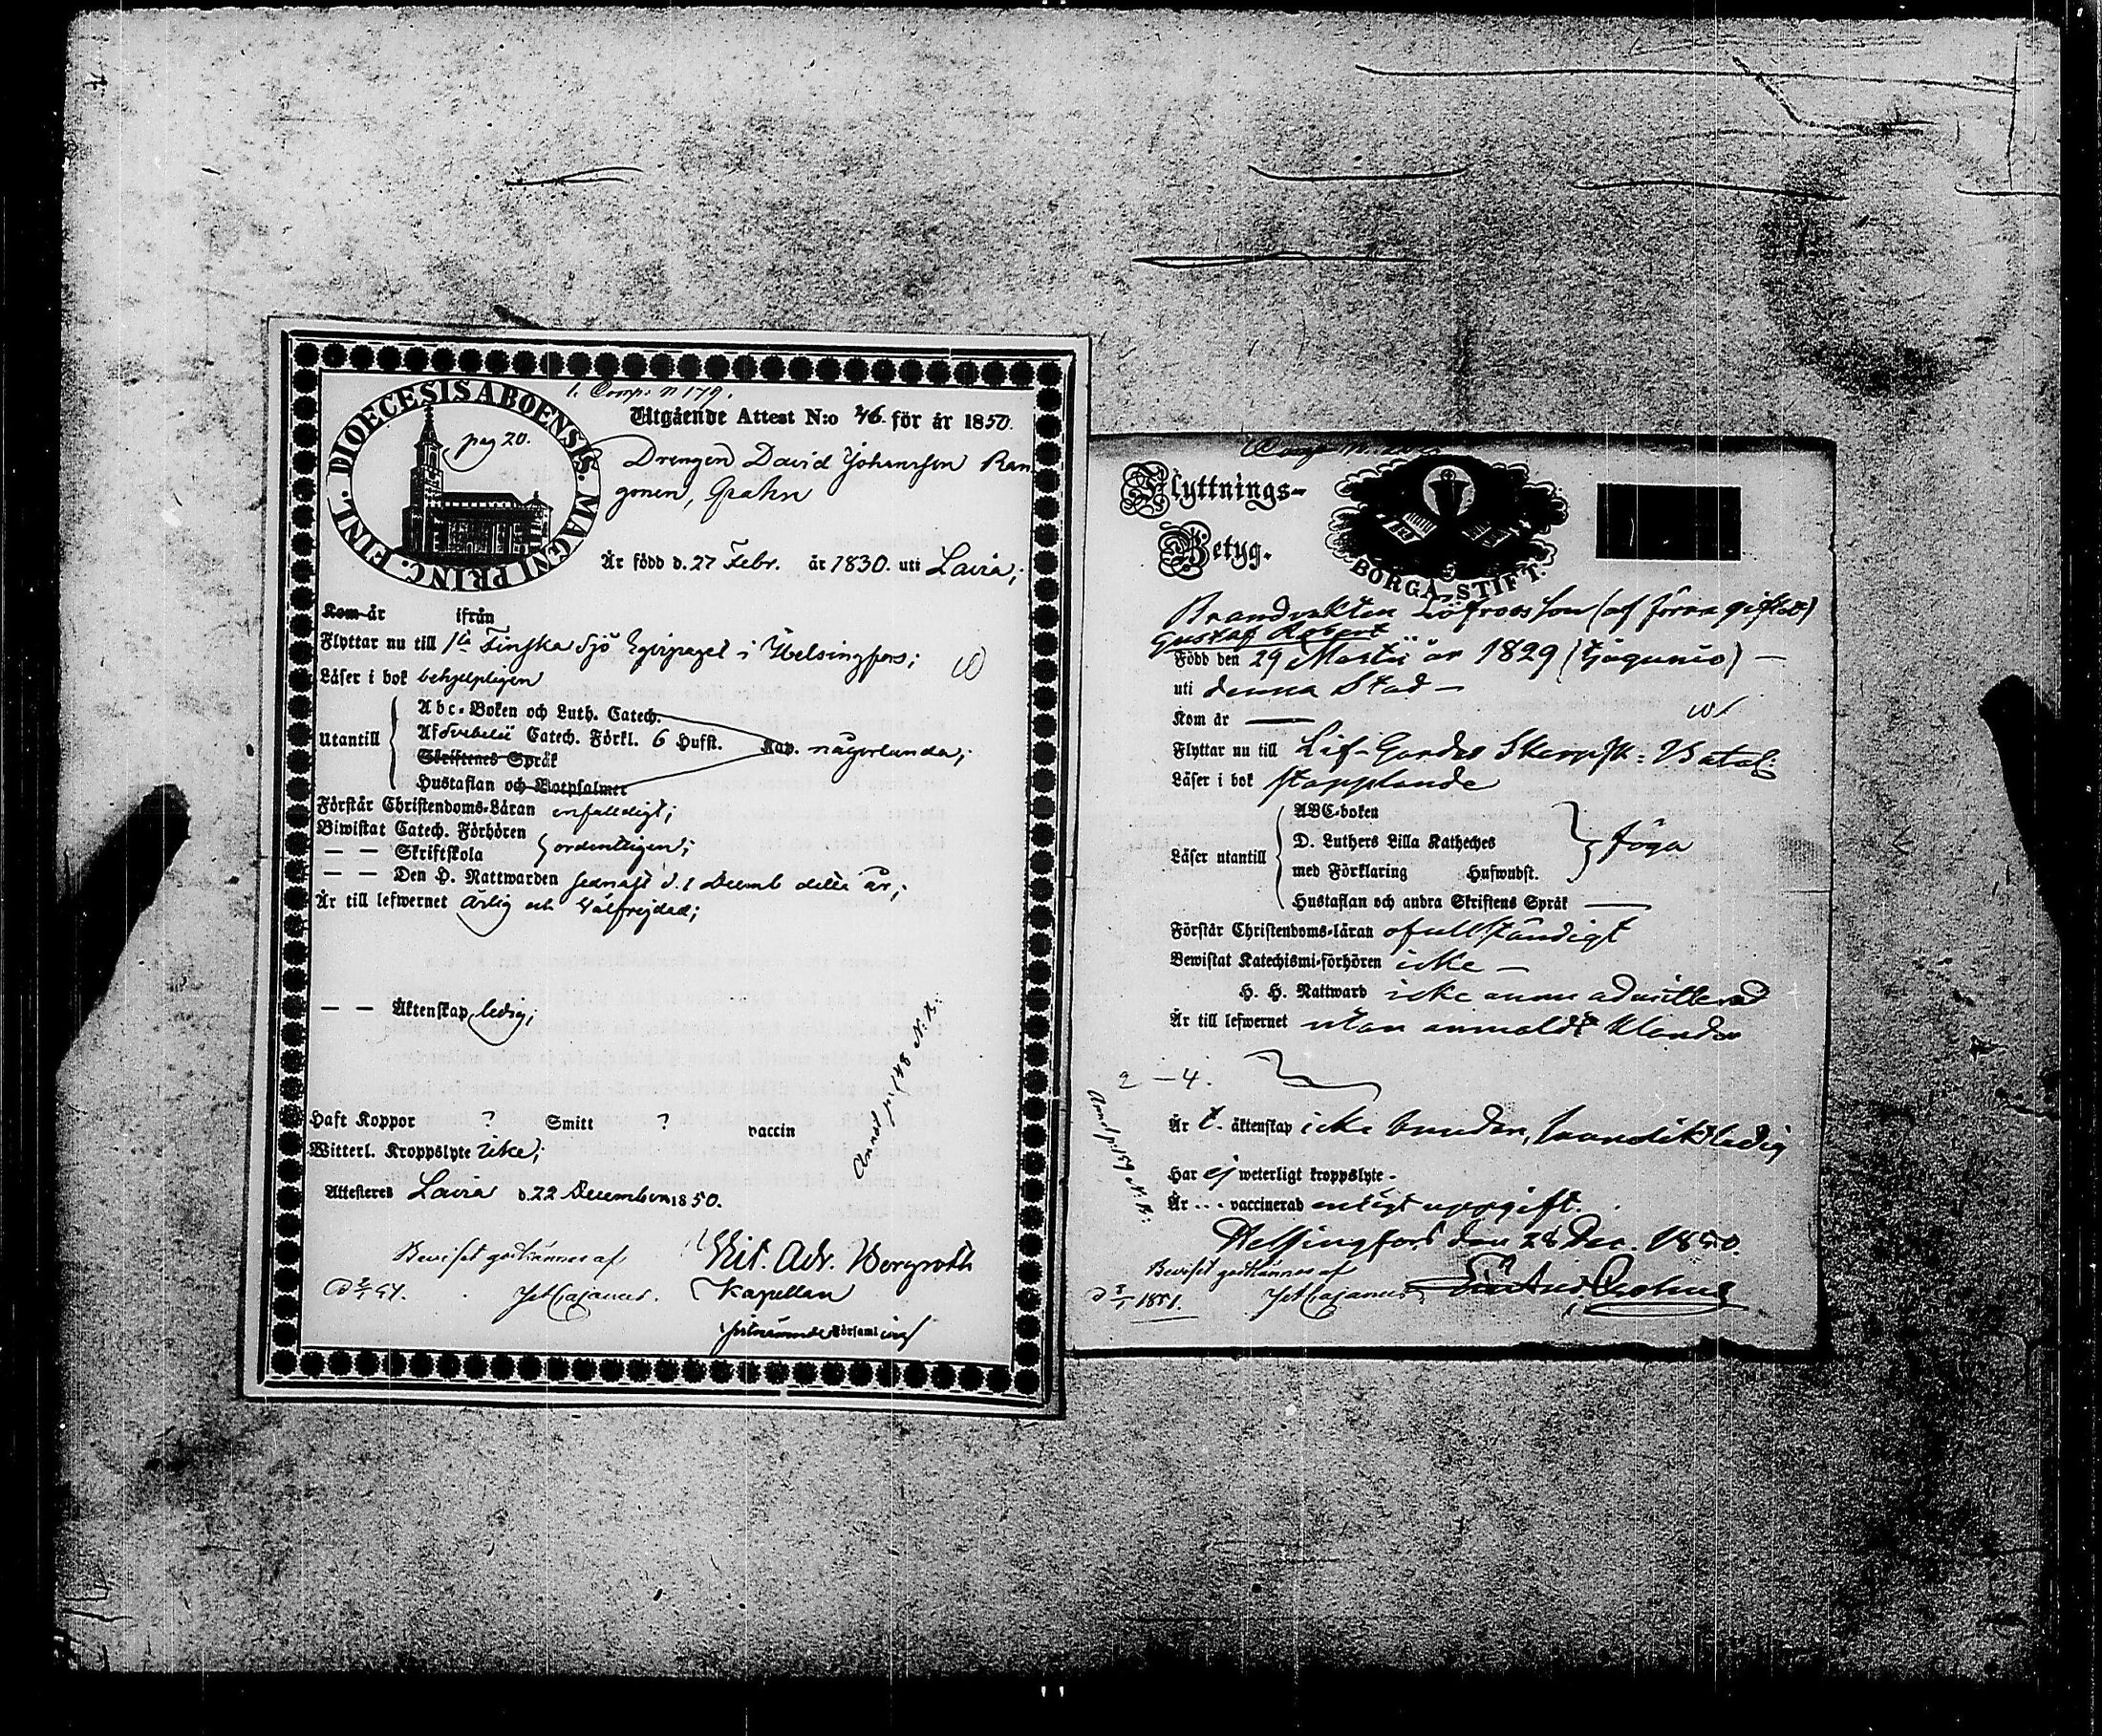 1. Comp: n 179.
DIOECESIS ABOENSIS. MAGNI PRINC. FINL.
pag 20.
Utgående Attest N:o 46. för år 1850.
Drengen David Johansson Ran
gonen, Grahn
Är född d. 27 Febr. år 1830. uti Lavia;
Kom år ifrån
Flyttar nu till 1sta Finska Sjö Eqvipaget i Helsingfors;
Läser i bok behjelpligen
Utantill
Abc-Boken och Luth. Catech.
Af Svebelii Catech. Förkl. 6 Hufst. Kap. någorlunda;
Skriftenes Språk
Hustaflan och Botpsalmer
Förstår Christendoms-Läran enfaldigt;
Biwistat Catech. Förhören
— — Skriftskola ordentligen;
— — Den H. Nattwarden sednast d. 1 Decemb detta år;
Är till lefwernet ärlig och Välfrejdad;
— — Äktenskap ledig;
Haft Koppor ? Smitt ? vaccin
Witterl. Kroppslyte icke;
Attesteres Lavia d. 22 December 1850.
Annot pag 148 N: B:
Beviset godkännes af
Vict. Adr. Bergroth
Kapellan
d 3/1 51. Joh Cajanus.
förenämnde Församling
Flyttnings-
Betyg.
BORGÅ STIFT.
Brandvakten Löfroos son (af förra giftet)
Gustaf Robert
Född den 29 Martii år 1829 (tjugunio) —
uti denna Stad —
Kom år —
Flyttar nu till Lif-Gardes Skarpsk: Batal:
Läser i bok stapplande
Läser utantill
ABC-boken
D. Luthers Lilla Katheches
med Förklaring Hufwudst.
föga
Hustaflan och andra Skriftens Språk —
Förstår Christendoms-läran ofullständigt
Bewistat Katechismi-förhören icke —
H. H. Nattward icke ännu admitterad
Är till lefwernet utan anmäldt klander
2 — 4.
Är t. äktenskap icke bunden, ledig
Har ej weterligt kroppslyte.
Är ... vaccinerad enligt uppgift.
Helsingfors den 28 Dec. 1850.
Annot p: 159 N: B:
Beviset godkännes af
d 3/1 1851. Joh Cajanus